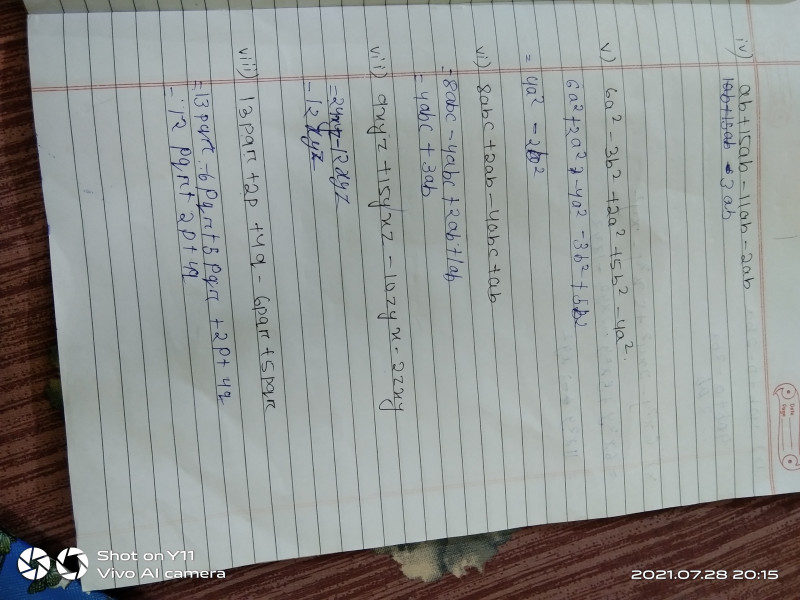 Date
Page
iv) ab + 15ab - 11ab - 2ab
16ab + 15ab - 3ab
v) 6a² - 3b² + 2a² + 5b² - 4a².
6a² + 2a² - 4a² - 3b² + 5b²
= 4a² - 2b²
vi) 8abc + 2ab - 4abc + ab
= 8abc - 4abc + 2ab + 1ab
= 4abc + 3ab
vii) 9xyz + 15yxz - 10zyx - 2zxy
= 24xyz - 12xyz
= 12xyz
viii) 13pqr + 2p + 4q - 6pqr + 5pqr
= 13pqr - 6pqr + 5pqr + 2p + 4q
= 12pqr + 2p + 4q
Shot on Y11
Vivo AI camera
2021.07.28 20:15